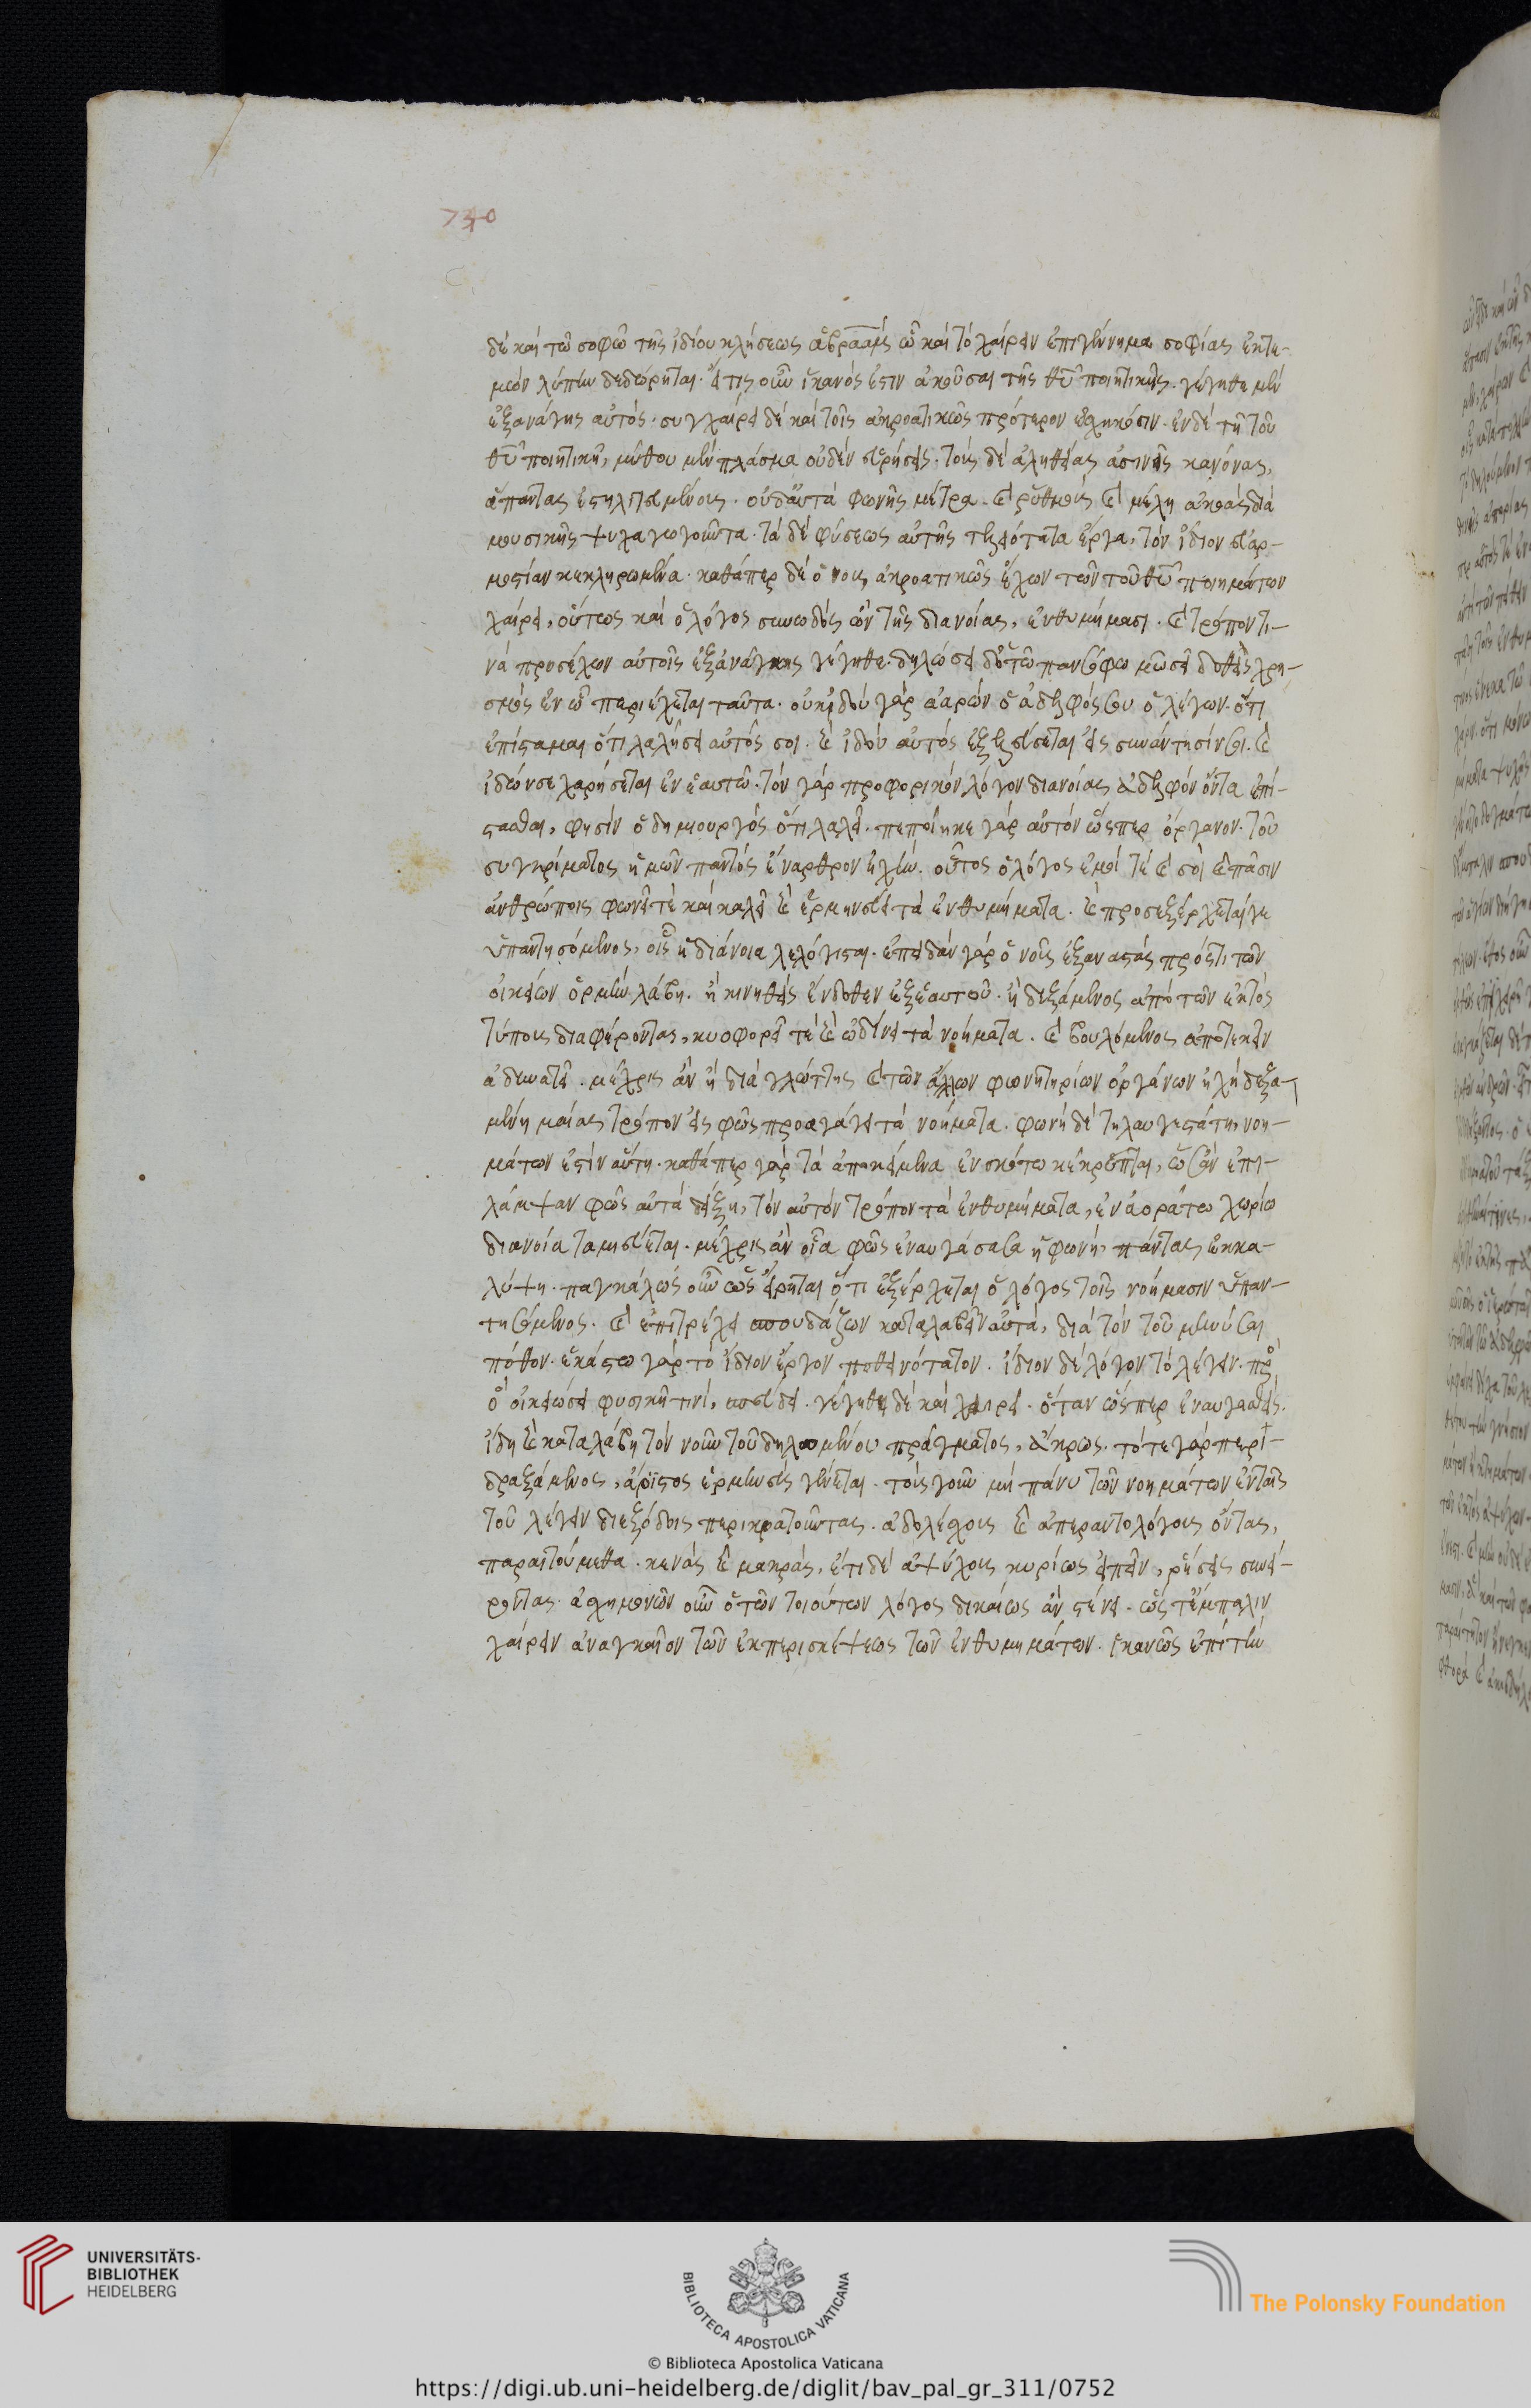 740
δὲ καὶ τῶ σοφῶ τῆς ἰδίου κλήσεως ἀβραάμ, ὧ καὶ τὸ χαίρειν ἐπιγέννημα σοφίας ἐκτε-
μὼν λύπην δεδώρηται. εἴ τις οὖν ἱκανός ἐστιν ἀκοῦσαι τῆς θῦ ποιητικῆς, γέγηθε μὲν
ἐξανάγκης αὐτός, συγχαίρει δὲ καὶ τοῖς ἀκροατικῶς πρότερον ἐσχηκόσιν. ἐν δὲ τῆ τοῦ
θῦ ποιητικῆ, μύθου μὲν πλάσμα οὐδὲν εὑρήσεις. τοὺς δὲ ἀληθείας ἀσινεῖς κανόνας,
ἅπαντας ἐστηλιτευμένους. οὐδ' αὐτὰ φωνῆς μέτρα καὶ ῥυθμοὺς καὶ μέλη ἀκοὰς διὰ
μουσικῆς ψυχαγωγοῦντα. τὰ δὲ φύσεως αὐτῆς τελειότατα ἔργα, τὸν ἴδιον εὐαρ-
μοστίαν κεκληρωμένα. καθάπερ δὲ ὁ νοῦς ἀκροατικῶς ἔχων τῶν τοῦ θῦ ποιημάτων
χαίρει, οὕτως καὶ ὁ λόγος συνωδὸς ὢν τῆς διανοίας, ἐνθυμήμασι. καὶ τρόπον τι-
νὰ προσέχων αὐτοῖς ἐξανάγκης γέγηθε. δηλώσει δὲ τῶ πανσόφω μωσεῖ δοθεὶς χρη-
σμὸς ἐν ὧ περιέχεται ταῦτα. οὐκ ἰδοὺ γὰρ ἀαρὼν ὁ ἀδελφός σου ὁ λέγων. ὅτι
ἐπίσταμαι ὅτι λαλήσει αὐτός σοι. καὶ ἰδοὺ αὐτὸς ἐξελεύσεται εἰς συνάντησίν σοι. καὶ
ἰδών σε χαρήσεται ἐν ἑαυτῶ. τὸν γὰρ προφορικὸν λόγον διανοίας ἀδελφὸν ὄντα ἐπί-
στασθαι, φησὶν ὁ δημιουργὸς ὅτι λαλεῖ. πεποίηκε γὰρ αὐτὸν ὥσπερ ὄργανον. τοῦ
συγκρίματος ἡμῶν παντὸς ἔναρθρον ἠχήν. οὗτος ὁ λόγος ἐμοί τε καὶ σοὶ καὶ πᾶσιν
ἀνθρώποις φωνεῖ τε καὶ καλεῖ καὶ ἑρμηνεύει τὰ ἐνθυμήματα. καὶ προσεξέρχεταί γε
ὑπαντησόμενος, οἷς ἡ διάνοια λελόγισται. ἐπειδὰν γὰρ ὁ νοῦς ἐξαναστὰς πρός τι τῶν
οἰκείων ὁρμὴν λάβη. ἢ κινηθεὶς ἔνδοθεν ἐξ ἑαυτοῦ. ἢ δεξάμενος ἀπὸ τῶν ἐκτὸς
τύπους διαφέροντας, κυοφορεῖ τε καὶ ὠδίνει τὰ νοήματα. καὶ βουλόμενος ἀποτεκεῖν
ἀδυνατεῖ. μέχρις ἂν ἡ διὰ γλώττης καὶ τῶν ἄλλων φωνητηρίων ὀργάνων ἠχὴ δεξα-
μένη μαίας τρόπον εἰς φῶς προαγάγει τὰ νοήματα. φωνὴ δὲ τηλαυγεστάτη νοη-
μάτων ἐστὶν αὕτη. καθάπερ γὰρ τὰ ἀποκείμενα ἐν σκότω κέκρυπται, ἕως ἂν ἐπι-
λάμψαν φῶς αὐτὰ δείξη, τὸν αὐτὸν τρόπον τὰ ἐνθυμήματα, ἐν ἀοράτω χωρίω
διανοία ταμιεύεται. μέχρις ἂν οἷα φῶς ἐναυγάσασα ἡ φωνὴ πάντας ἐκκα-
λύψη. παγκάλως οὖν ὡς εἴρηται ὅτι ἐξέρχεται ὁ λόγος τοῖς νοήμασιν ὑπαν-
τησόμενος. καὶ ἐπιτρέχει σπουδάζων καταλαβεῖν αὐτά, διὰ τὸν τοῦ μηνύσαι
πόθον. ἑκάστω γὰρ τὸ ἴδιον ἔργον ποθεινότατον. ἴδιον δὲ λόγου τὸ λέγειν. πρὸς
ὃ οἰκειώσει φυσικῆ τινὶ, σπεύδει. γέγηθε δὲ καὶ χαίρει. ὅταν ὥσπερ ἐναυγασθεὶς
ἴδη καὶ καταλάβη τὸν νοῦν τοῦ δηλουμένου πράγματος, ἄκρως. τότε γὰρ περι-
δραξάμενος, ἄριστος ἑρμηνεὺς γίνεται. τοὺς γοῦν μὴ πάνυ τῶν νοημάτων ἐν ταῖς
τοῦ λέγειν διεξόδοις περικρατοῦντας. ἀδολέσχους καὶ ἀπεραντολόγους ὄντας,
παραιτούμεθα. κενὰς καὶ μακρὰς, ἔτι δὲ ἀψύχους κυρίως εἰπεῖν, ῥήσεις συνεί-
ροντας. ἀσχημονῶν οὖν ὁ τῶν τοιούτων λόγος δικαίως ἂν στένει. ὡς τἔμπαλιν
χαίρειν ἀναγκαῖον τῶν ἐκ περισκέψεως τῶν ἐνθυμημάτων. ἱκανῶς ἐπὶ τὴν
UNIVERSITÄTS-
BIBLIOTHEK
HEIDELBERG
BIBLIOTECA APOSTOLICA VATICANA
The Polonsky Foundation
© Biblioteca Apostolica Vaticana
https://digi.ub.uni-heidelberg.de/diglit/bav_pal_gr_311/0752